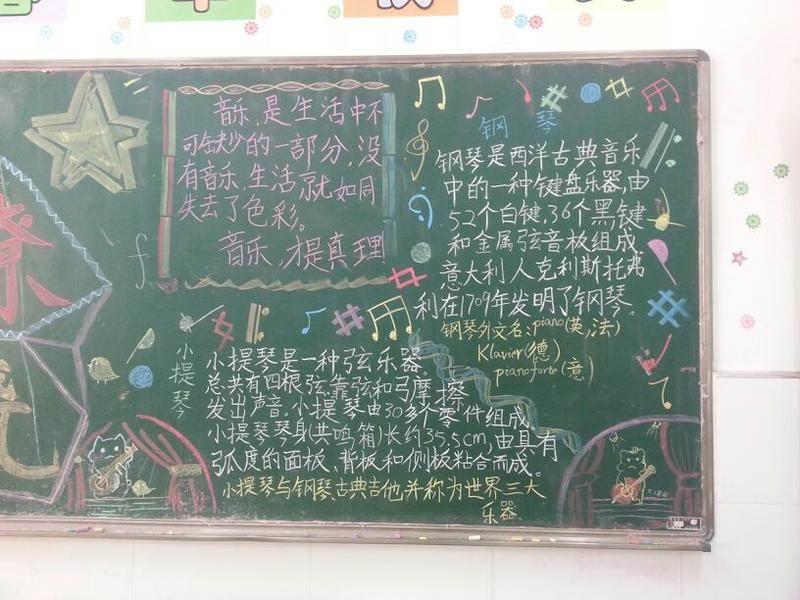 音乐，是生活中不
可缺少的一部分，没
有音乐，生活就如同
失去了色彩。
音乐，才是真理
钢琴
钢琴是西洋古典音乐
中的一种键盘乐器，由
52个白键，36个黑键
和金属弦音板组成，
意大利人克利斯托弗
利在1709年发明了钢琴。
钢琴外文名：piano(英，法)
Klavier(德)
pianoforte(意)
小提琴
小提琴是一种弦乐器。
总共有四根弦，靠弦和弓摩擦
发出声音。小提琴由30多个零件组成。
小提琴琴身(共鸣箱)长约35.5cm，由具有
弧度的面板、背板和侧板粘合而成。
小提琴与钢琴古典吉他并称为世界三大
乐器。